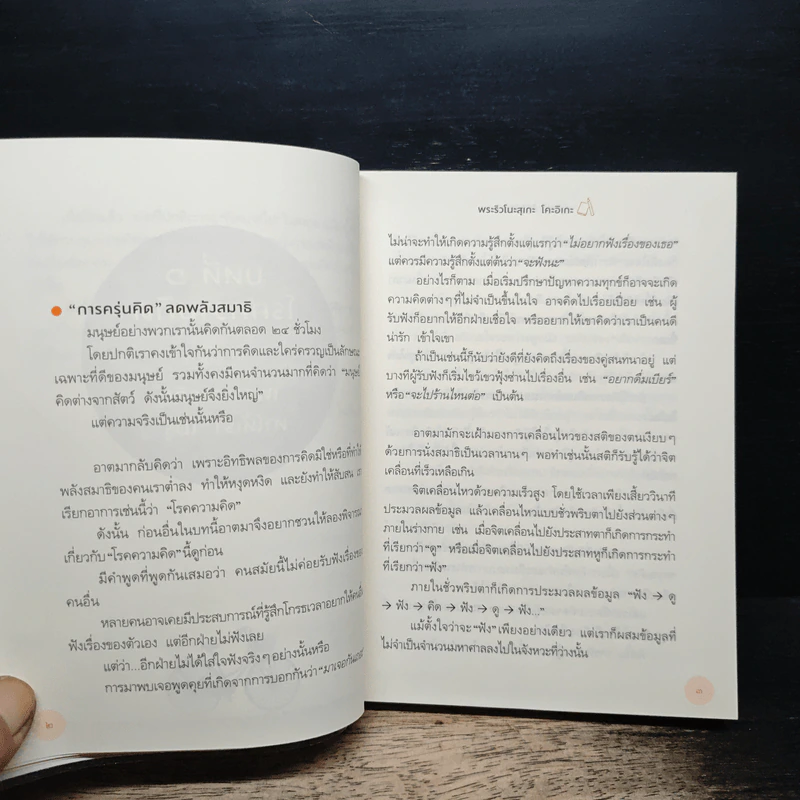 “การครุ่นคิด” ลดพลังสมาธิ
มนุษย์อย่างพวกเรานั้นคิดกันตลอด ๒๔ ชั่วโมง
โดยปกติเราคงเข้าใจกันว่าการคิดและใคร่ครวญเป็นลักษณะ
เฉพาะที่ดีของมนุษย์ รวมทั้งคงมีคนจำนวนมากที่คิดว่า “มนุษย์
คิดต่างจากสัตว์ ดังนั้นมนุษย์จึงยิ่งใหญ่”
แต่ความจริงเป็นเช่นนั้นหรือ
อาตมากลับคิดว่า เพราะอิทธิพลของการคิดมิใช่หรือที่ทำให้
พลังสมาธิของคนเราต่ำลง ทำให้หงุดหงิด และยังทำให้สับสน
เรียกอาการเช่นนี้ว่า “โรคความคิด”
ดังนั้น ก่อนอื่นในบทนี้อาตมาจึงอยากชวนให้ลองพิจารณา
เกี่ยวกับ “โรคความคิด” นี้ดูก่อน
มีคำพูดที่พูดกันเสมอว่า คนสมัยนี้ไม่ค่อยรับฟังเรื่องของ
คนอื่น
หลายคนอาจเคยมีประสบการณ์ที่รู้สึกโกรธเวลาอยากให้คนอื่น
ฟังเรื่องของตัวเอง แต่อีกฝ่ายไม่ฟังเลย
แต่ว่า...อีกฝ่ายไม่ได้ใส่ใจฟังจริงๆ อย่างนั้นหรือ
การมาพบเจอพูดคุยที่เกิดจากการบอกกันว่า “มาเจอกันเถอะ
๒
พระริวโนะสุเกะ โคะอิเกะ
ไม่น่าจะทำให้เกิดความรู้สึกตั้งแต่แรกว่า “ไม่อยากฟังเรื่องของเธอ”
แต่ควรมีความรู้สึกตั้งแต่ต้นว่า “จะฟังนะ”
อย่างไรก็ตาม เมื่อเริ่มปรึกษาปัญหาความทุกข์ก็อาจจะเกิด
ความคิดต่างๆ ที่ไม่จำเป็นขึ้นในใจ อาจคิดไปเรื่อยเปื่อย เช่น ผู้
รับฟังก็อยากให้อีกฝ่ายเชื่อใจ หรืออยากให้เขาคิดว่าเราเป็นคนดี
น่ารัก เข้าใจเขา
ถ้าเป็นเช่นนี้ก็นับว่ายังดีที่ยังคิดถึงเรื่องของคู่สนทนาอยู่ แต่
บางทีผู้รับฟังก็เริ่มไขว้เขวฟุ้งซ่านไปเรื่องอื่น เช่น “อยากดื่มเบียร์”
หรือ “จะไปร้านไหนต่อ” เป็นต้น
อาตมามักจะเฝ้ามองการเคลื่อนไหวของสติของตนเงียบๆ
ด้วยการนั่งสมาธิเป็นเวลานานๆ พอทำเช่นนั้นสติก็รับรู้ได้ว่าจิต
เคลื่อนที่เร็วเหลือเกิน
จิตเคลื่อนไหวด้วยความเร็วสูง โดยใช้เวลาเพียงเสี้ยววินาที
ประมวลผลข้อมูล แล้วเคลื่อนไหวแบบชั่วพริบตาไปยังส่วนต่างๆ
ภายในร่างกาย เช่น เมื่อจิตเคลื่อนไปยังประสาทตาก็เกิดการกระทำ
ที่เรียกว่า “ดู” หรือเมื่อจิตเคลื่อนไปยังประสาทหูก็เกิดการกระทำ
ที่เรียกว่า “ฟัง”
ภายในชั่วพริบตาก็เกิดการประมวลผลข้อมูล “ฟัง → ดู
→ ฟัง → คิด → ฟัง → ดู → ฟัง...”
แม้ตั้งใจว่าจะ “ฟัง” เพียงอย่างเดียว แต่เราก็ผสมข้อมูลที่
ไม่จำเป็นจำนวนมหาศาลลงไปในจังหวะที่ว่างนั้น
๓